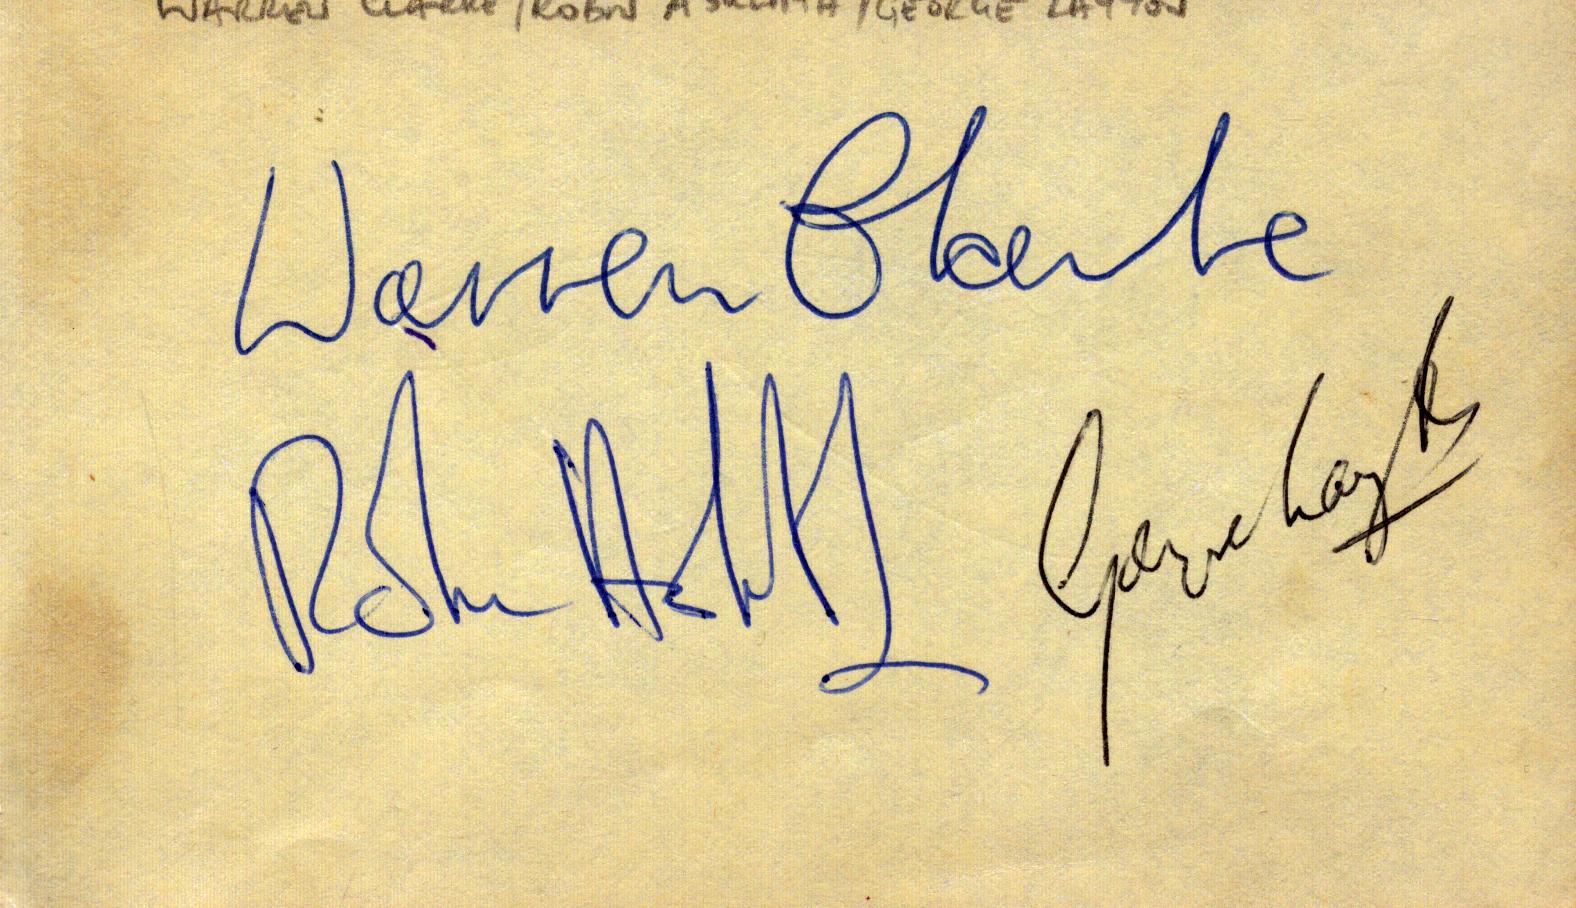 WARREN CLARKE/ROBIN ASKWITH/GEORGE LAYTON
Warren Clarke
Robin Askwith
George Layton